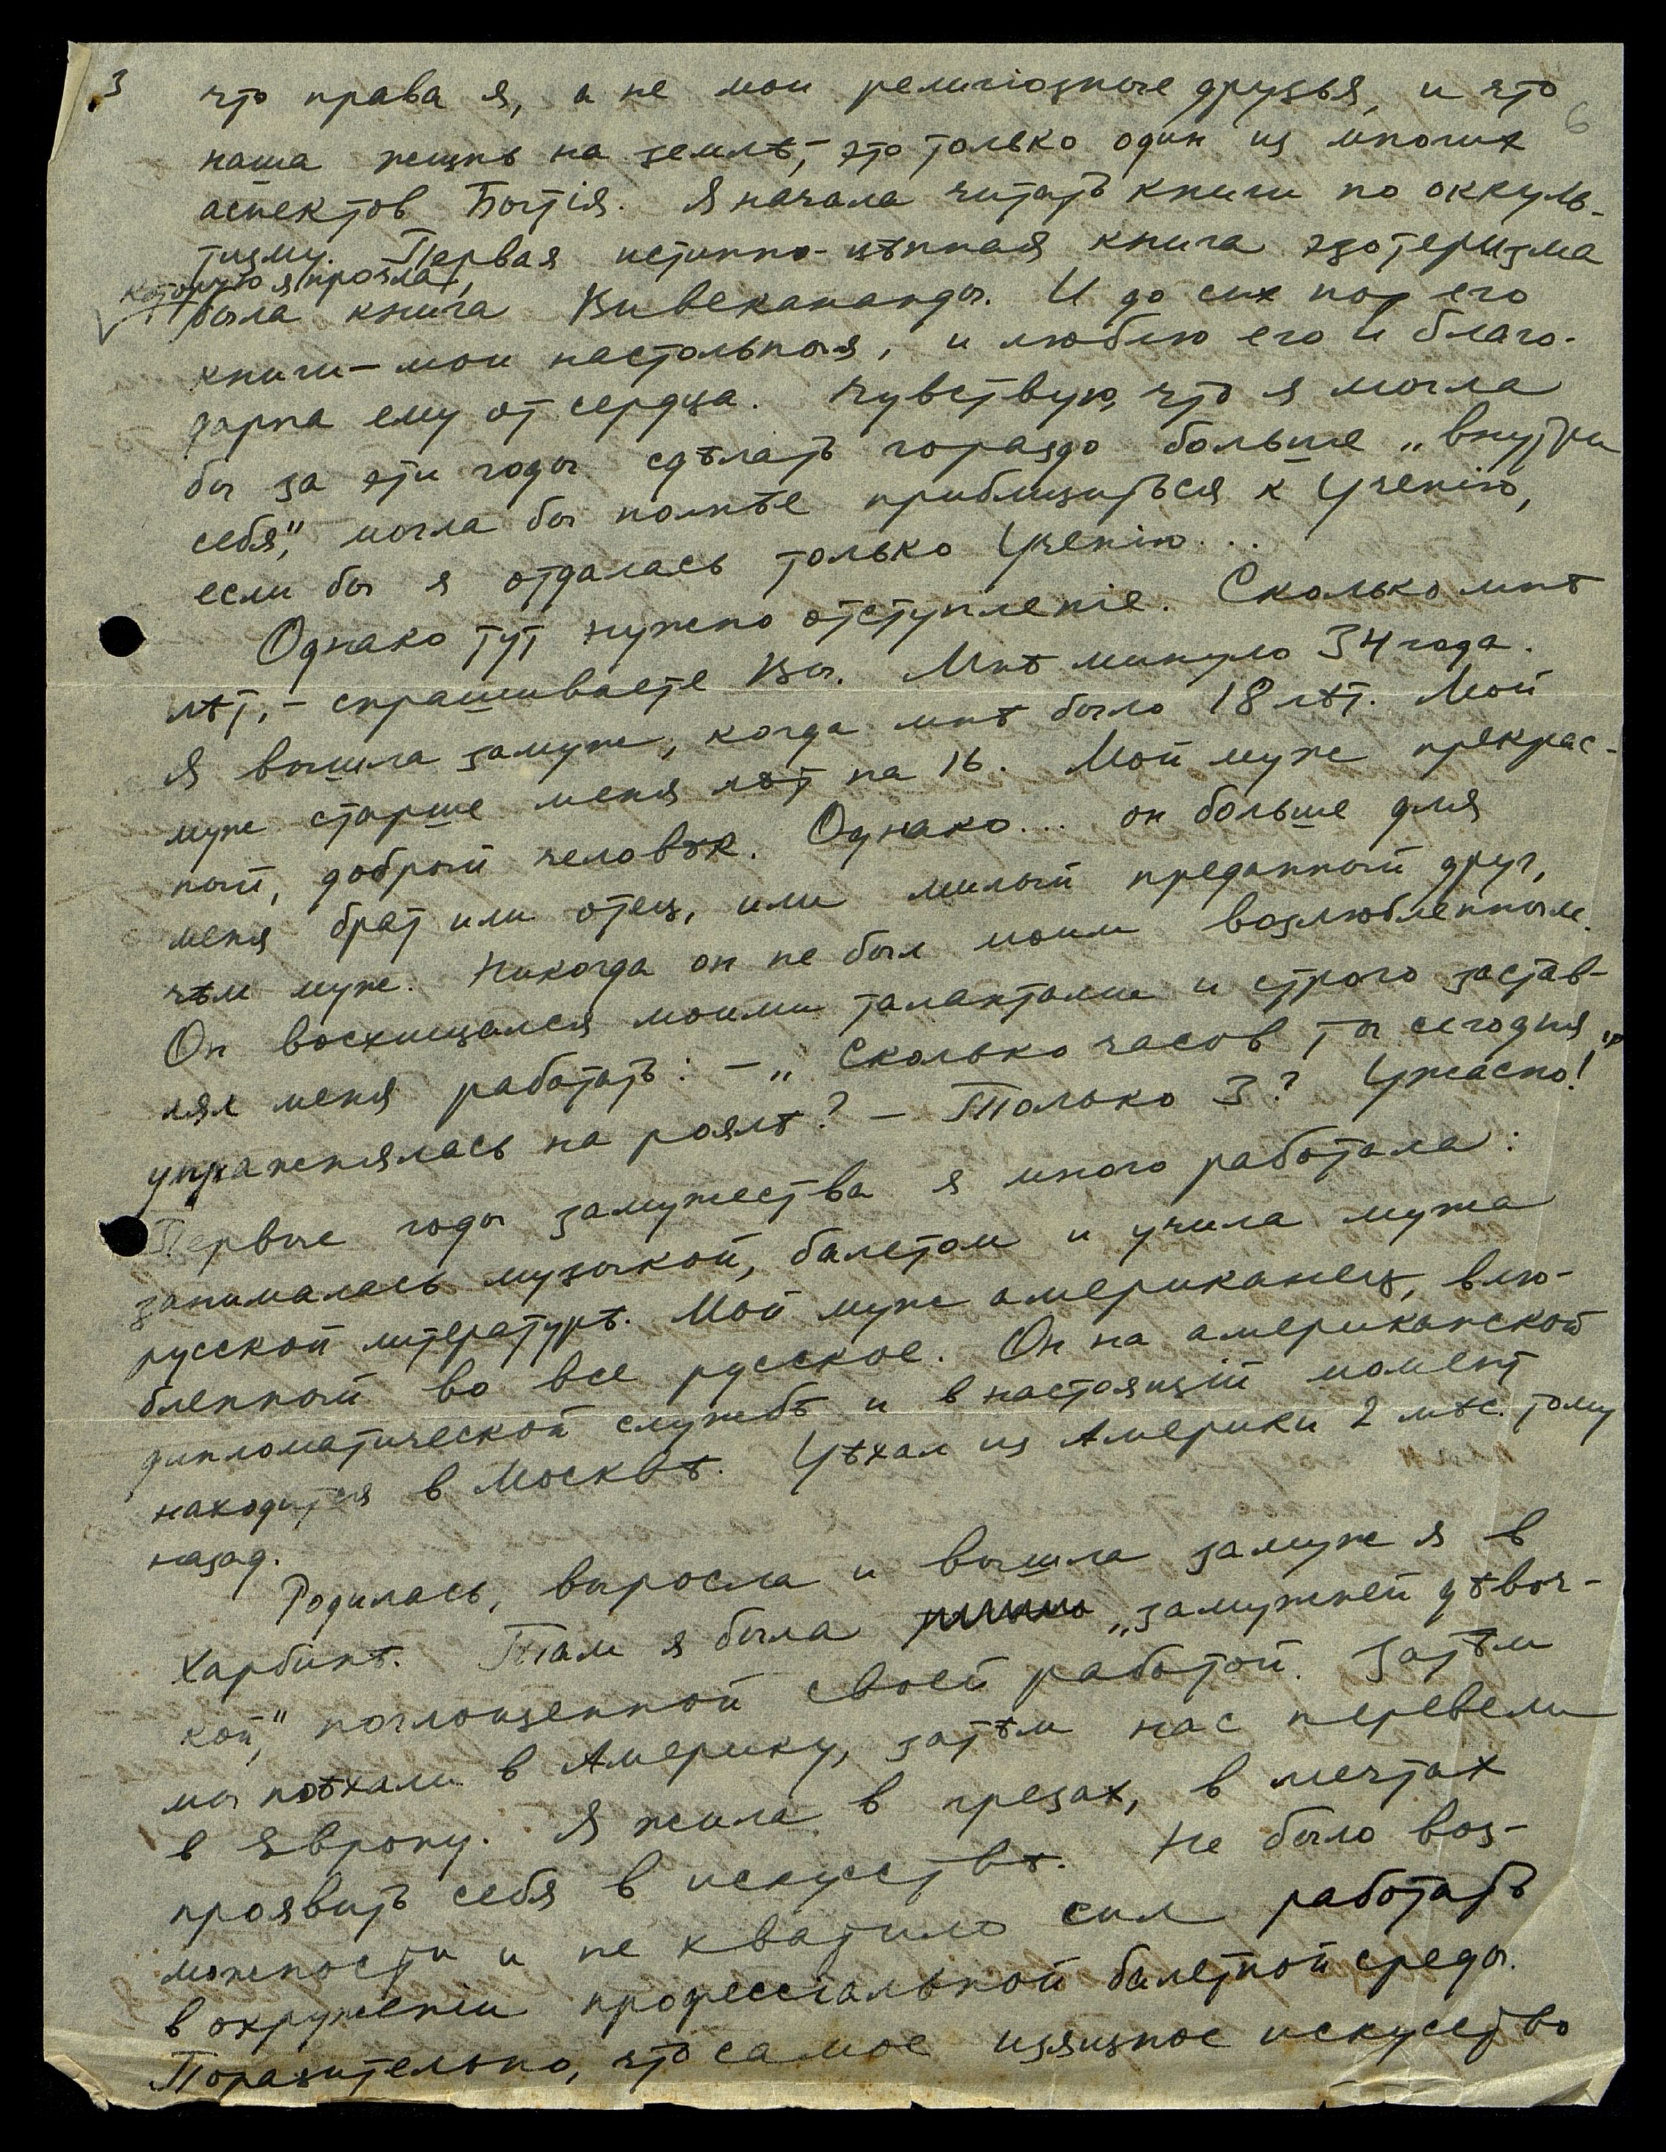 3
6
что права я, а не мои религіозные друзья, и что
наша жизнь на землѣ, – это только один из многих
аспектов Бытія. Я начала читать книги по оккуль-
тизму. Первая истинно-цѣнная книга эзотеризма
которую я прочла,
была книга Вивекананды. И до сих пор его
книги – мои настольныя, и люблю его и благо-
дарна ему от сердца. Чувствую, что я могла
бы за эти годы сдѣлать гораздо больше „внутри
себя“, могла бы полнѣе приблизиться к Ученію,
если бы я отдалась только Ученію...
Однако тут нужно отступленіе. Сколько мнѣ
лѣт, – спрашиваете Вы. Мнѣ минуло 34 года.
Я вышла замуж, когда мнѣ было 18 лѣт. Мой
муж старше меня лѣт на 16. Мой муж прекрас-
ный, добрый человѣк. Однако... он больше для
меня брат или отец, или милый преданный друг,
чѣм муж. Никогда он не был моим возлюбленным.
Он восхищался моими талантами и строго застав-
лял меня работать: – „Сколько часов ты сегодня
упражнялась на роялѣ? – Только 3? Ужасно!“
Первые годы замужества я много работала:
занималась музыкой, балетом и учила мужа
русской литературѣ. Мой муж американец, влю-
бленный во все русское. Он на американской
дипломатической службѣ и в настоящій момент
находится в Москвѣ. Уѣхал из Америки 2 мѣс. тому
назад.
Родилась, выросла и вышла замуж я в
Харбинѣ. Там я была „замужней дѣвоч-
кой“, поглощенной своей работой. Затѣм
мы поѣхали в Америку, затѣм нас перевели
в Европу. Я жила в грезах, в мечтах
проявить себя в искусствѣ. Не было воз-
можности и не хватило сил работать
в окруженіи профессіальной балетной среды.
Поразительно, что самое изящное искусство